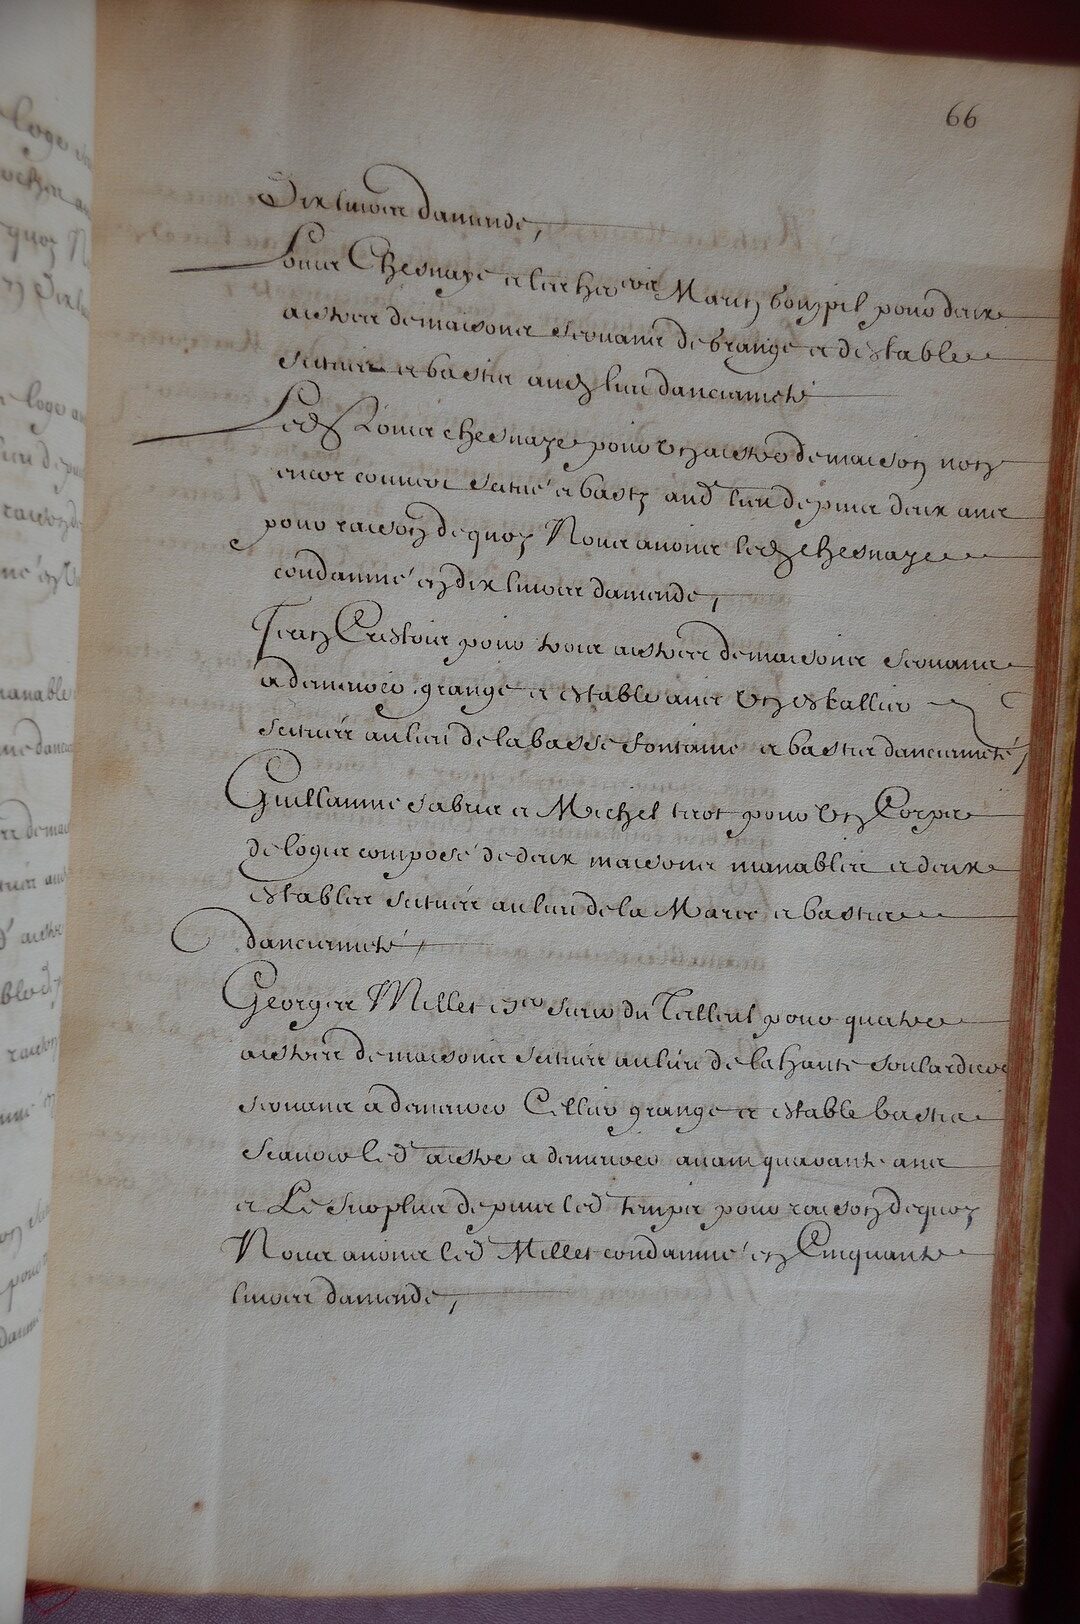 66
Dix livres damende,
Louis Chesnaye et les her.ers Marin Goupil pour deux
aistres de maisons servans de grange et destable
scituez et bastis aud lieu dancienneté
Led Louis chesnaye pour un aistre de maison non
encor couvert scitué et basty aud lieu depuis deux ans
pour raison de quoy Nous avons led chesnaye
condamné en dix livres damende,
Jean Crestois pour trois aistres de maisons servans
a demeurer, grange et estable avec un eskallier
scituez au lieu de la basse fontaine et bastis dancienneté,
Guillaume fabius et Michel tirot pour un Corps
de logis composé de deux maisons manables et deux
estables scituez au lieu de la Mare et bastis
dancienneté,
Georges Millet esr sieur du Tilleul pour quatre
aistres de maisons scituez au lieu de la haute foulardiere
servans a demeurer Cellier grange et estable bastis
scavoir led aistre a demeurer avant quarante ans
et Le surplus depuis led temps pour raison de quoy
Nous avons led Millet condamné en Cinquante
livres damende,